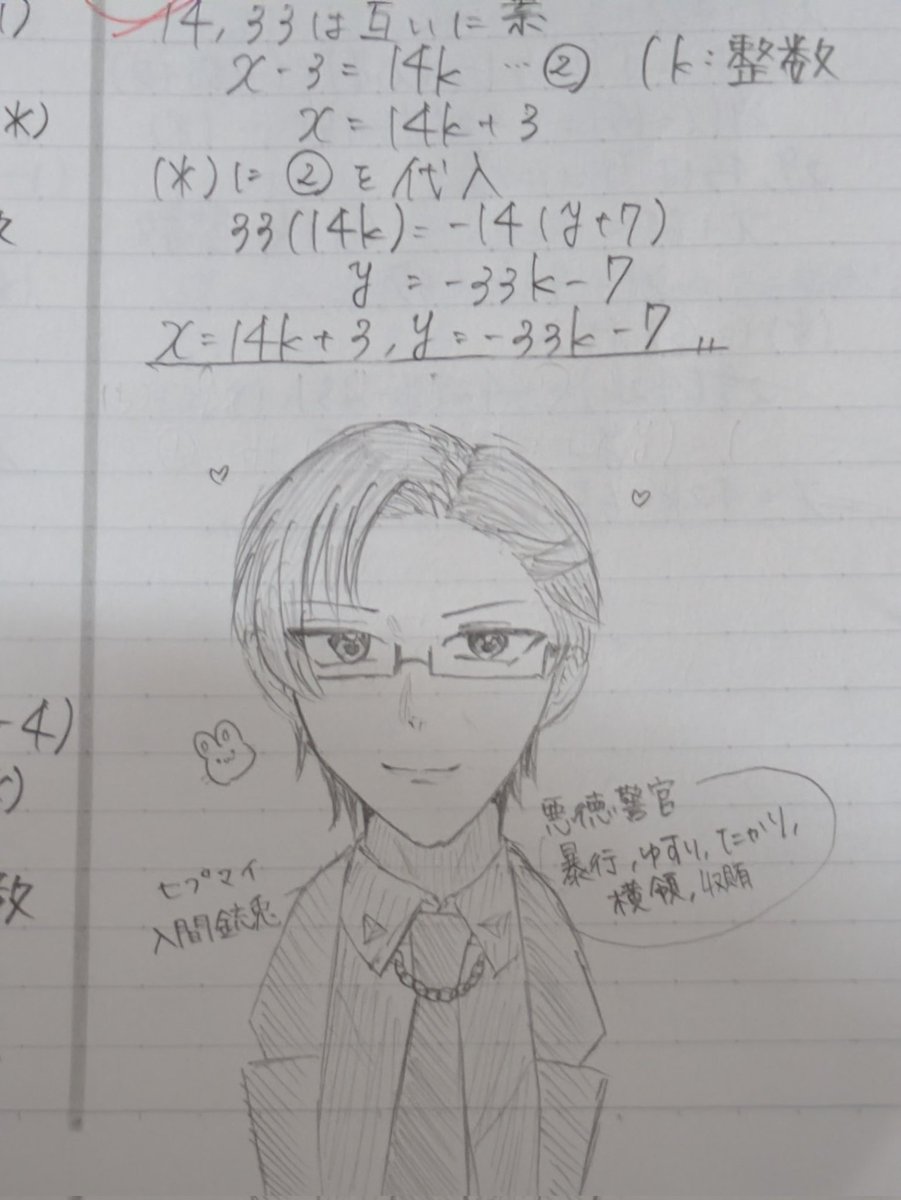 14, 33は互いに素
x - 3 = 14k … ② (k:整数
x = 14k + 3
(*)に②を代入
33(14k) = -14(y+7)
y = -33k - 7
x = 14k + 3, y = -33k - 7 〃
*)
-4)
数
悪徳警官
暴行, ゆすり, たかり,
横領, 収賄
ヒプマイ
入間銃兎